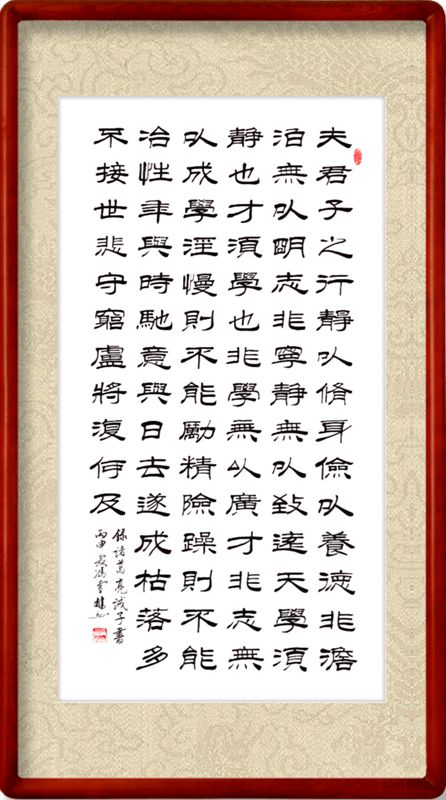 夫君子之行靜以脩身儉以養德非澹
泊無以明志非寧靜無以致遠天學須
靜也才須學也非學無以廣才非志無
以成學淫慢則不能勵精險躁則不能
冶性年與時馳意與日去遂成枯落多
不接世悲守窮廬將復何及
錄諸葛亮誡子書
丙申